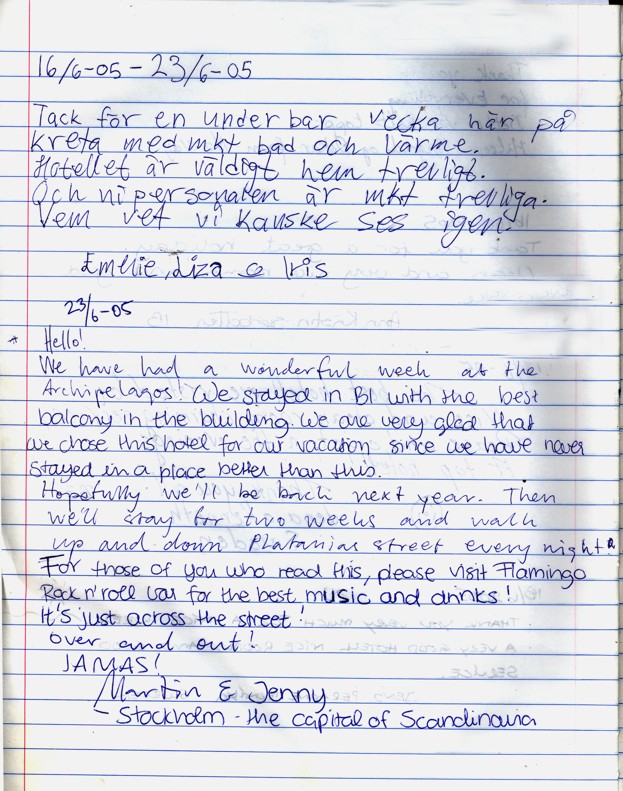 16/6-05 – 23/6-05
Tack för en underbar vecka här på
Kreta med mkt bad och värme.
Hotellet är väldigt hem trevligt.
Och ni personalen är mkt trevliga.
Vem vet vi kanske ses igen.
Emelie, Liza & Iris
23/6-05
* Hello!
We have had a wonderful week at the
Archipelagos! We stayed in B1 with the best
balcony in the building. We are very glad that
we chose this hotel for our vacation since we have never
stayed in a place better than this.
Hopefully we'll be back next year. Then
we'll stay for two weeks and walk
up and down Platanias street every night
For those of you who read this, please visit Flamingo
Rock n' roll bar for the best music and drinks!
It's just across the street!
Over and out!
JAMAS!
Martin & Jenny
– Stockholm - the capital of Scandinavia